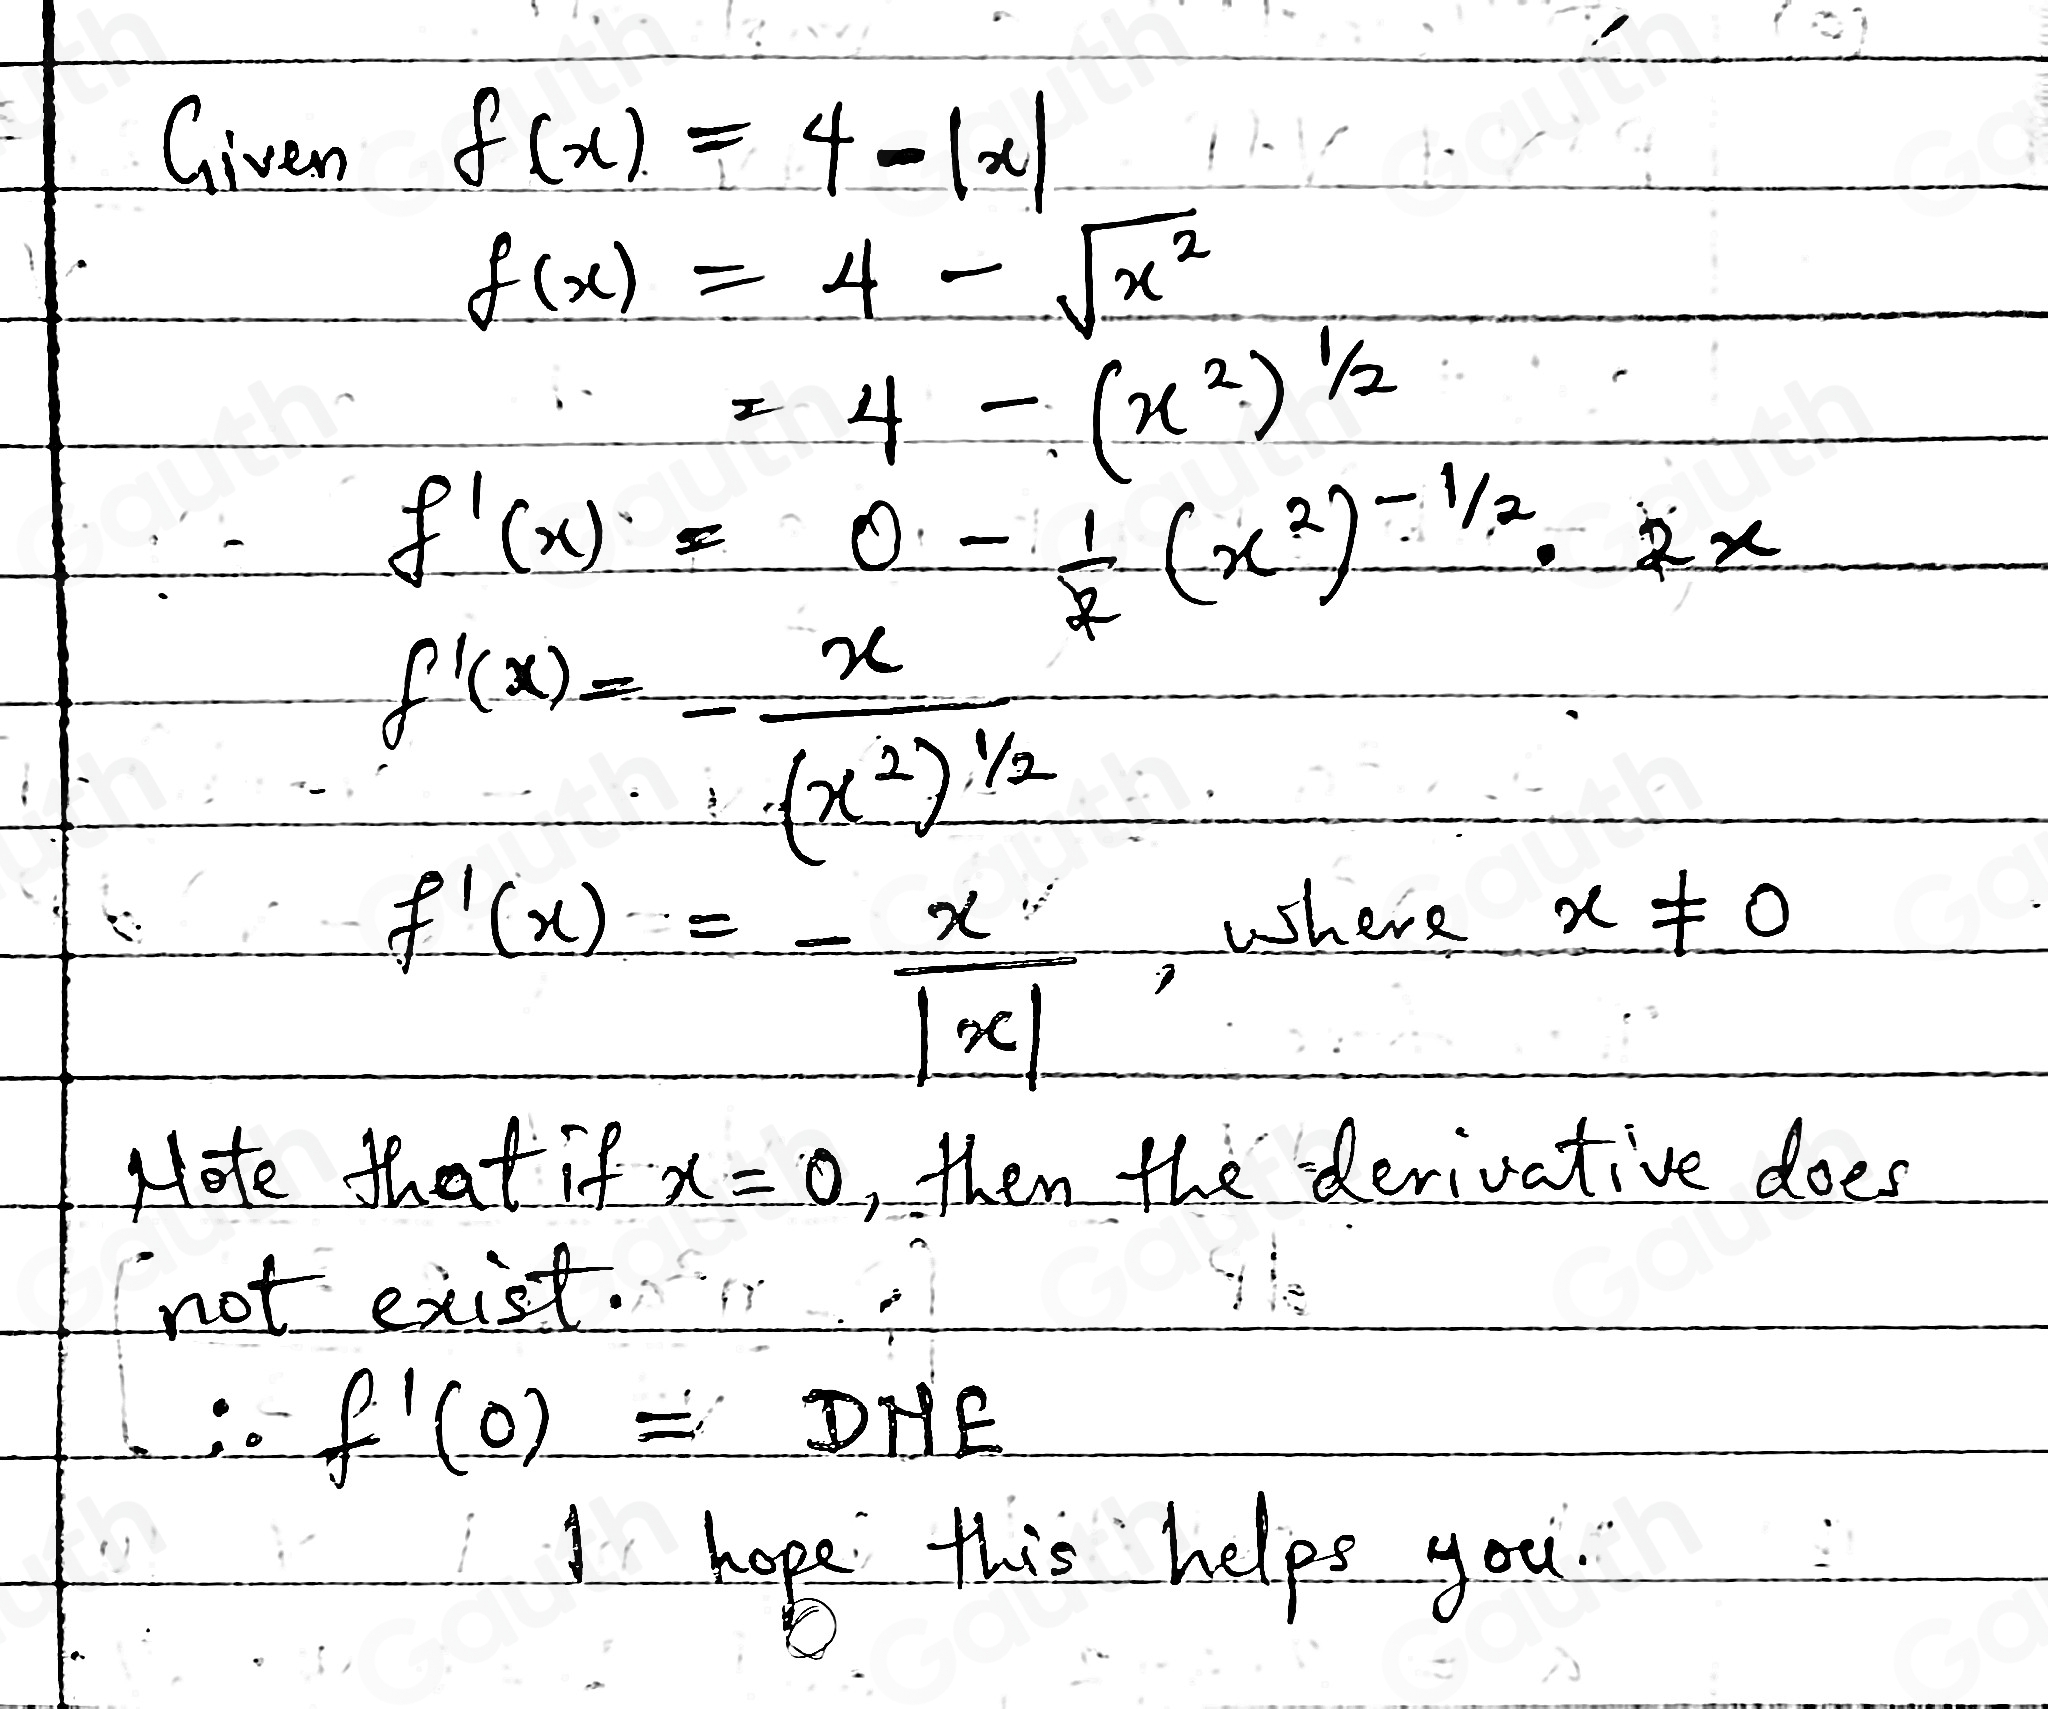 Given f(x) = 4 - |x|
f(x) = 4 - √x²
= 4 - (x²)^1/2
f'(x) = 0 - 1/2 (x²)^-1/2 . 2x
f'(x) = - x/(x²)^1/2
f'(x) = - x/|x| , where x ≠ 0
Note that if x = 0, then the derivative does
not exist.
∴ f'(0) = DNE
I hope this helps you.
Gauth